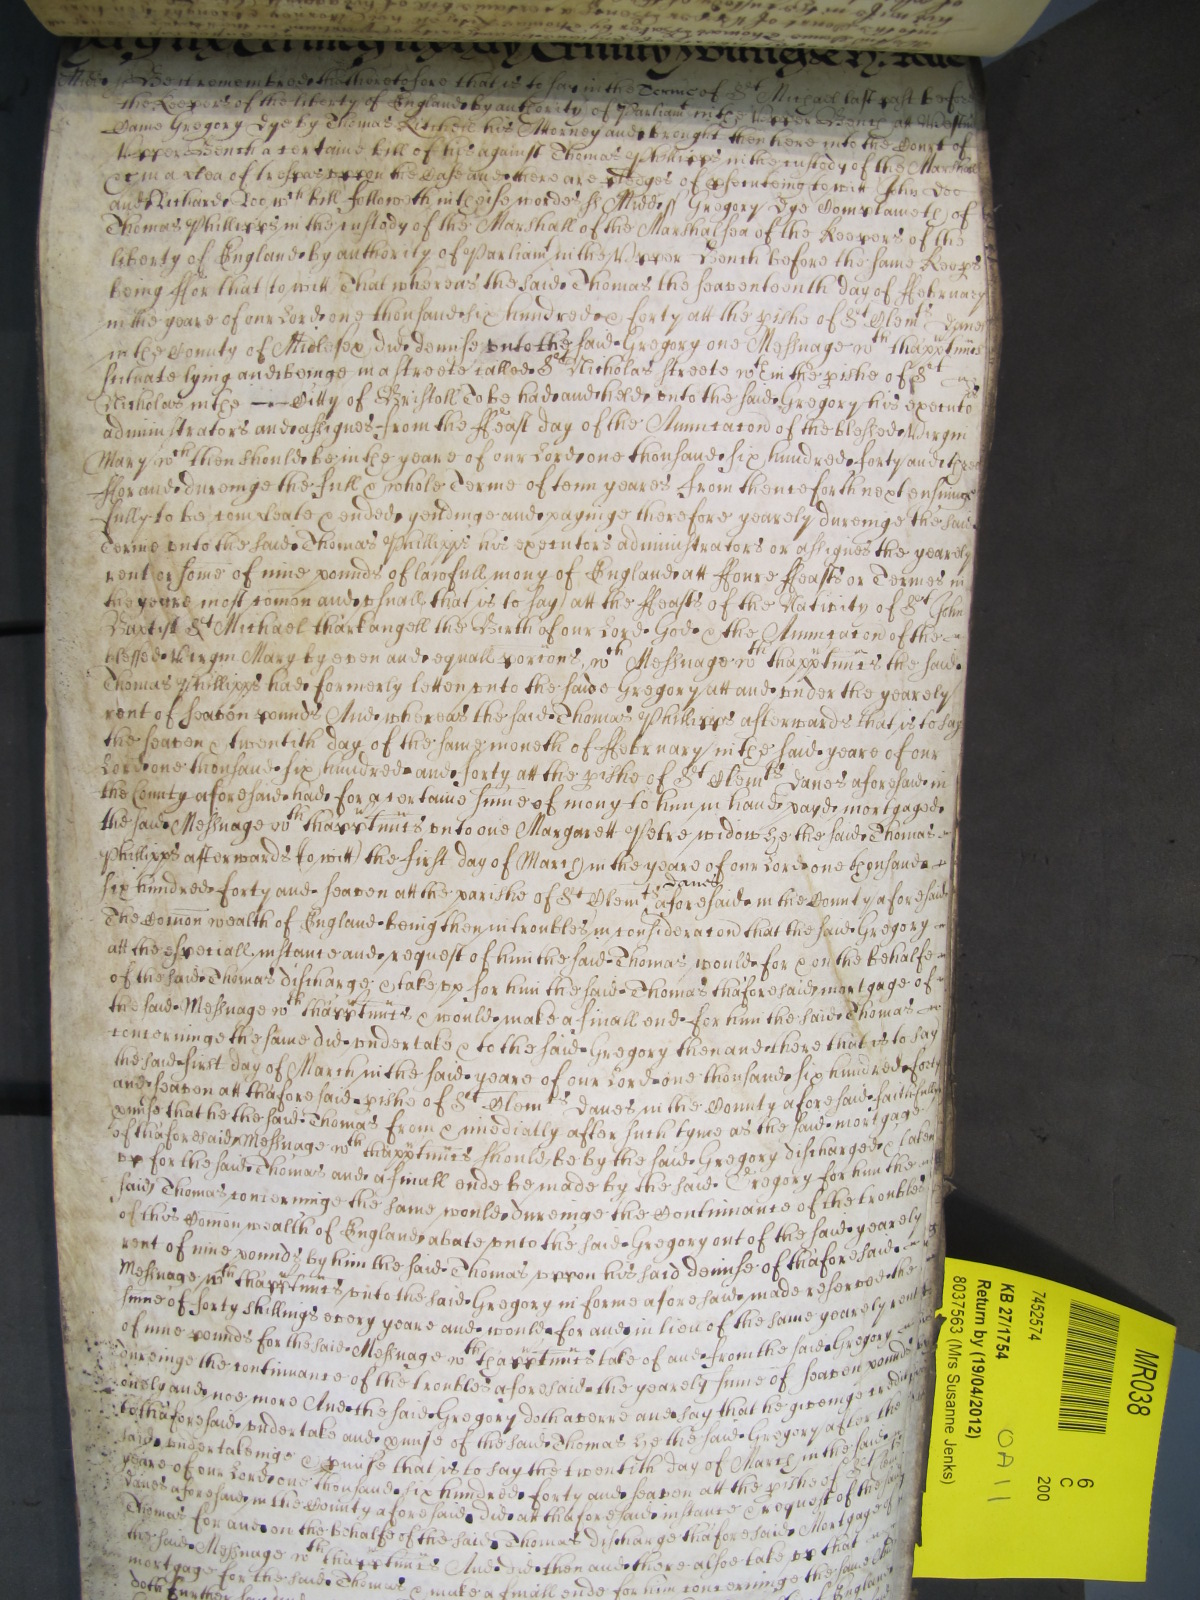 Trinity Witnes H: Rolle
Midds ss Be it remembred that heretofore that is to say in the Terme of St Michael last past before
the Keepers of the liberty of England by authority of Parliamt in the Upper Bench att Westmr
Came Gregory Dye by Thomas Kitchell his Attorney and brought then here into the Court of
Upper Bench a certaine bill of his against Thomas Phillipps in the custody of the Marshall
&c in a plea of trespas uppon the Case and there are pledges of psecuteing to witt John Doe
and Richard Roe wch bill followeth in theise wordes ss Midds ss Gregory Dye Complaineth of
Thomas Phillipps in the custody of the Marshall of the Marshalsea of the Keepers of the
liberty of England by authority of Parliamt in the Upper Bench before the same Keeps
being ffor that to witt That whereas the said Thomas the seaventeenth day of ffebruary
in the yeare of our Lord one thousand six hundred & forty att the pishe of St Clemts Danes
in the County of Midlesex did demise unto the said Gregory one Messuage wth thapptnncs
scituate lying and beinge in a streete called St Nicholas streete wthin the pishe of St
Nicholas in the Citty of Bristoll To be had and held unto the said Gregory his executors
administrators and assignes from the ffeast day of the Annunciacon of the blessed Virgin
Mary wch then should be in the yeare of our Lord one thousand six hundred forty and three
ffor and dureinge the full & whole Terme of tenn yeares from thenceforth next ensuinge
fully to be compleate & ended yeildinge and payinge therefore yearely dureinge the said
Terme unto the said Thomas Phillipps his executors administrators or assignes the yearely
rent or some of nine pounds of lawfull mony of England att ffoure ffeasts or Termes in
the yeare most comon and usuall that is to say att the ffeasts of the Nativity of St John
Baptist St Michael tharkangell the Birth of our Lord God & the Annunciacon of the
blessed Virgin Mary by even and equall porcions, wch Messuage wth thapptnncs the said
Thomas Phillipps had formerly letten unto the saide Gregory att and under the yearely
rent of seaven pounds And whereas the said Thomas Phillipps afterwards that is to say
the seaven & twentith day of the same moneth of ffebruary in the said yeare of our
Lord one thousand six hundred and forty att the pishe of St Clemts Danes aforesaid in
the County aforesaid had for a certaine summe of mony to him in hand payd mortgaged
the said Messuage wth thapptnncs unto one Margarett Petre widow he the said Thomas
Phillipps afterwards (to witt) the first day of March in the yeare of our Lord one thousand
six hundred forty and seaven att the parishe of St Clemts Danes aforesaid in the County aforesaid
The Comon wealth of England being then in troubles in consideracon that the said Gregory
att the especiall instance and request of him the said Thomas would for & on the behalfe
of the said Thomas discharge & take up for him the said Thomas thaforesaid mortgage of
the said Messuage wth thapptnncs & would make a finall end for him the said Thomas
concerninge the same did undertake & to the said Gregory then and there that is to say
the said first day of March in the said yeare of our Lord one thousand six hundred forty
and seaven att thaforesaid pishe of St Clemts Danes in the County aforesaid faithfully
pmise that he the said Thomas from & imediatly after such tyme as the said mortgage
of thaforesaid Messuage wth thapptnncs should be by the said Gregory discharged & taken
up for the said Thomas and a finall ende be made by the said Gregory for him the
said Thomas concerninge the same would dureinge the Continuance of the troubles
of this Comon wealth of England abate unto the said Gregory out of the said yearely
rent of nine pounds by him the said Thomas uppon his said demise of thaforesaid
Messuage wth thapptnncs unto the said Gregory in forme aforesaid made reserved the
sume of forty shillings every yeare and would for and in lieu of the same yearely rent
of nine pounds for the said Messuage wth thapptnncs take of and from the said Gregory
dureinge the continuance of the troubles aforesaid the yearely sume of seaven pounds
onely and noe more And the said Gregory doth averre and say that he giveinge creditt
to thaforesaid undertake and pmise of the said Thomas he the said Gregory after the
said undertakinge & pmise that is to say the twentith day of March in the said
yeare of our Lord one thousand six hundred forty and seaven att the pishe of St
Danes aforesaid in the County aforesaid did att thaforesaid instance & request of the said
Thomas for and on the behalfe of the said Thomas discharge thaforesaid Mortgage of
the said Messuage wth thapptnncs And did then and there alsoe take up that
mortgage for the said Thomas & make a finall ende for him concerninge the same And
doth further
MR038
6
C
200
7452574
KB 27/1754
Return by (19/04/2012)
8037563 (Mrs Susanne Jenks)
OA 11